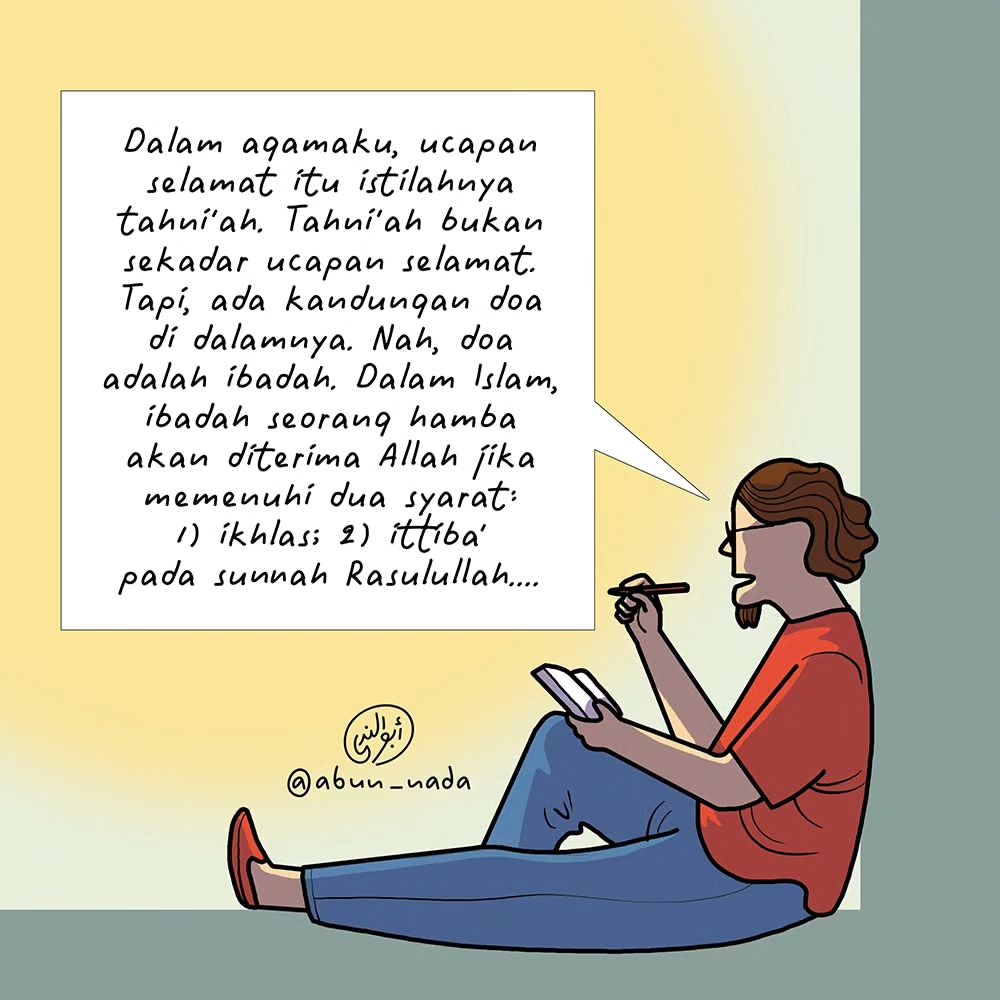 Dalam agamaku, ucapan
selamat itu istilahnya
tahni'ah. Tahni'ah bukan
sekadar ucapan selamat.
Tapi, ada kandungan doa
di dalamnya. Nah, doa
adalah ibadah. Dalam Islam,
ibadah seorang hamba
akan diterima Allah jika
memenuhi dua syarat:
1) ikhlas; 2) ittiba'
pada sunnah Rasulullah....
أبو الندى
@abun_nada